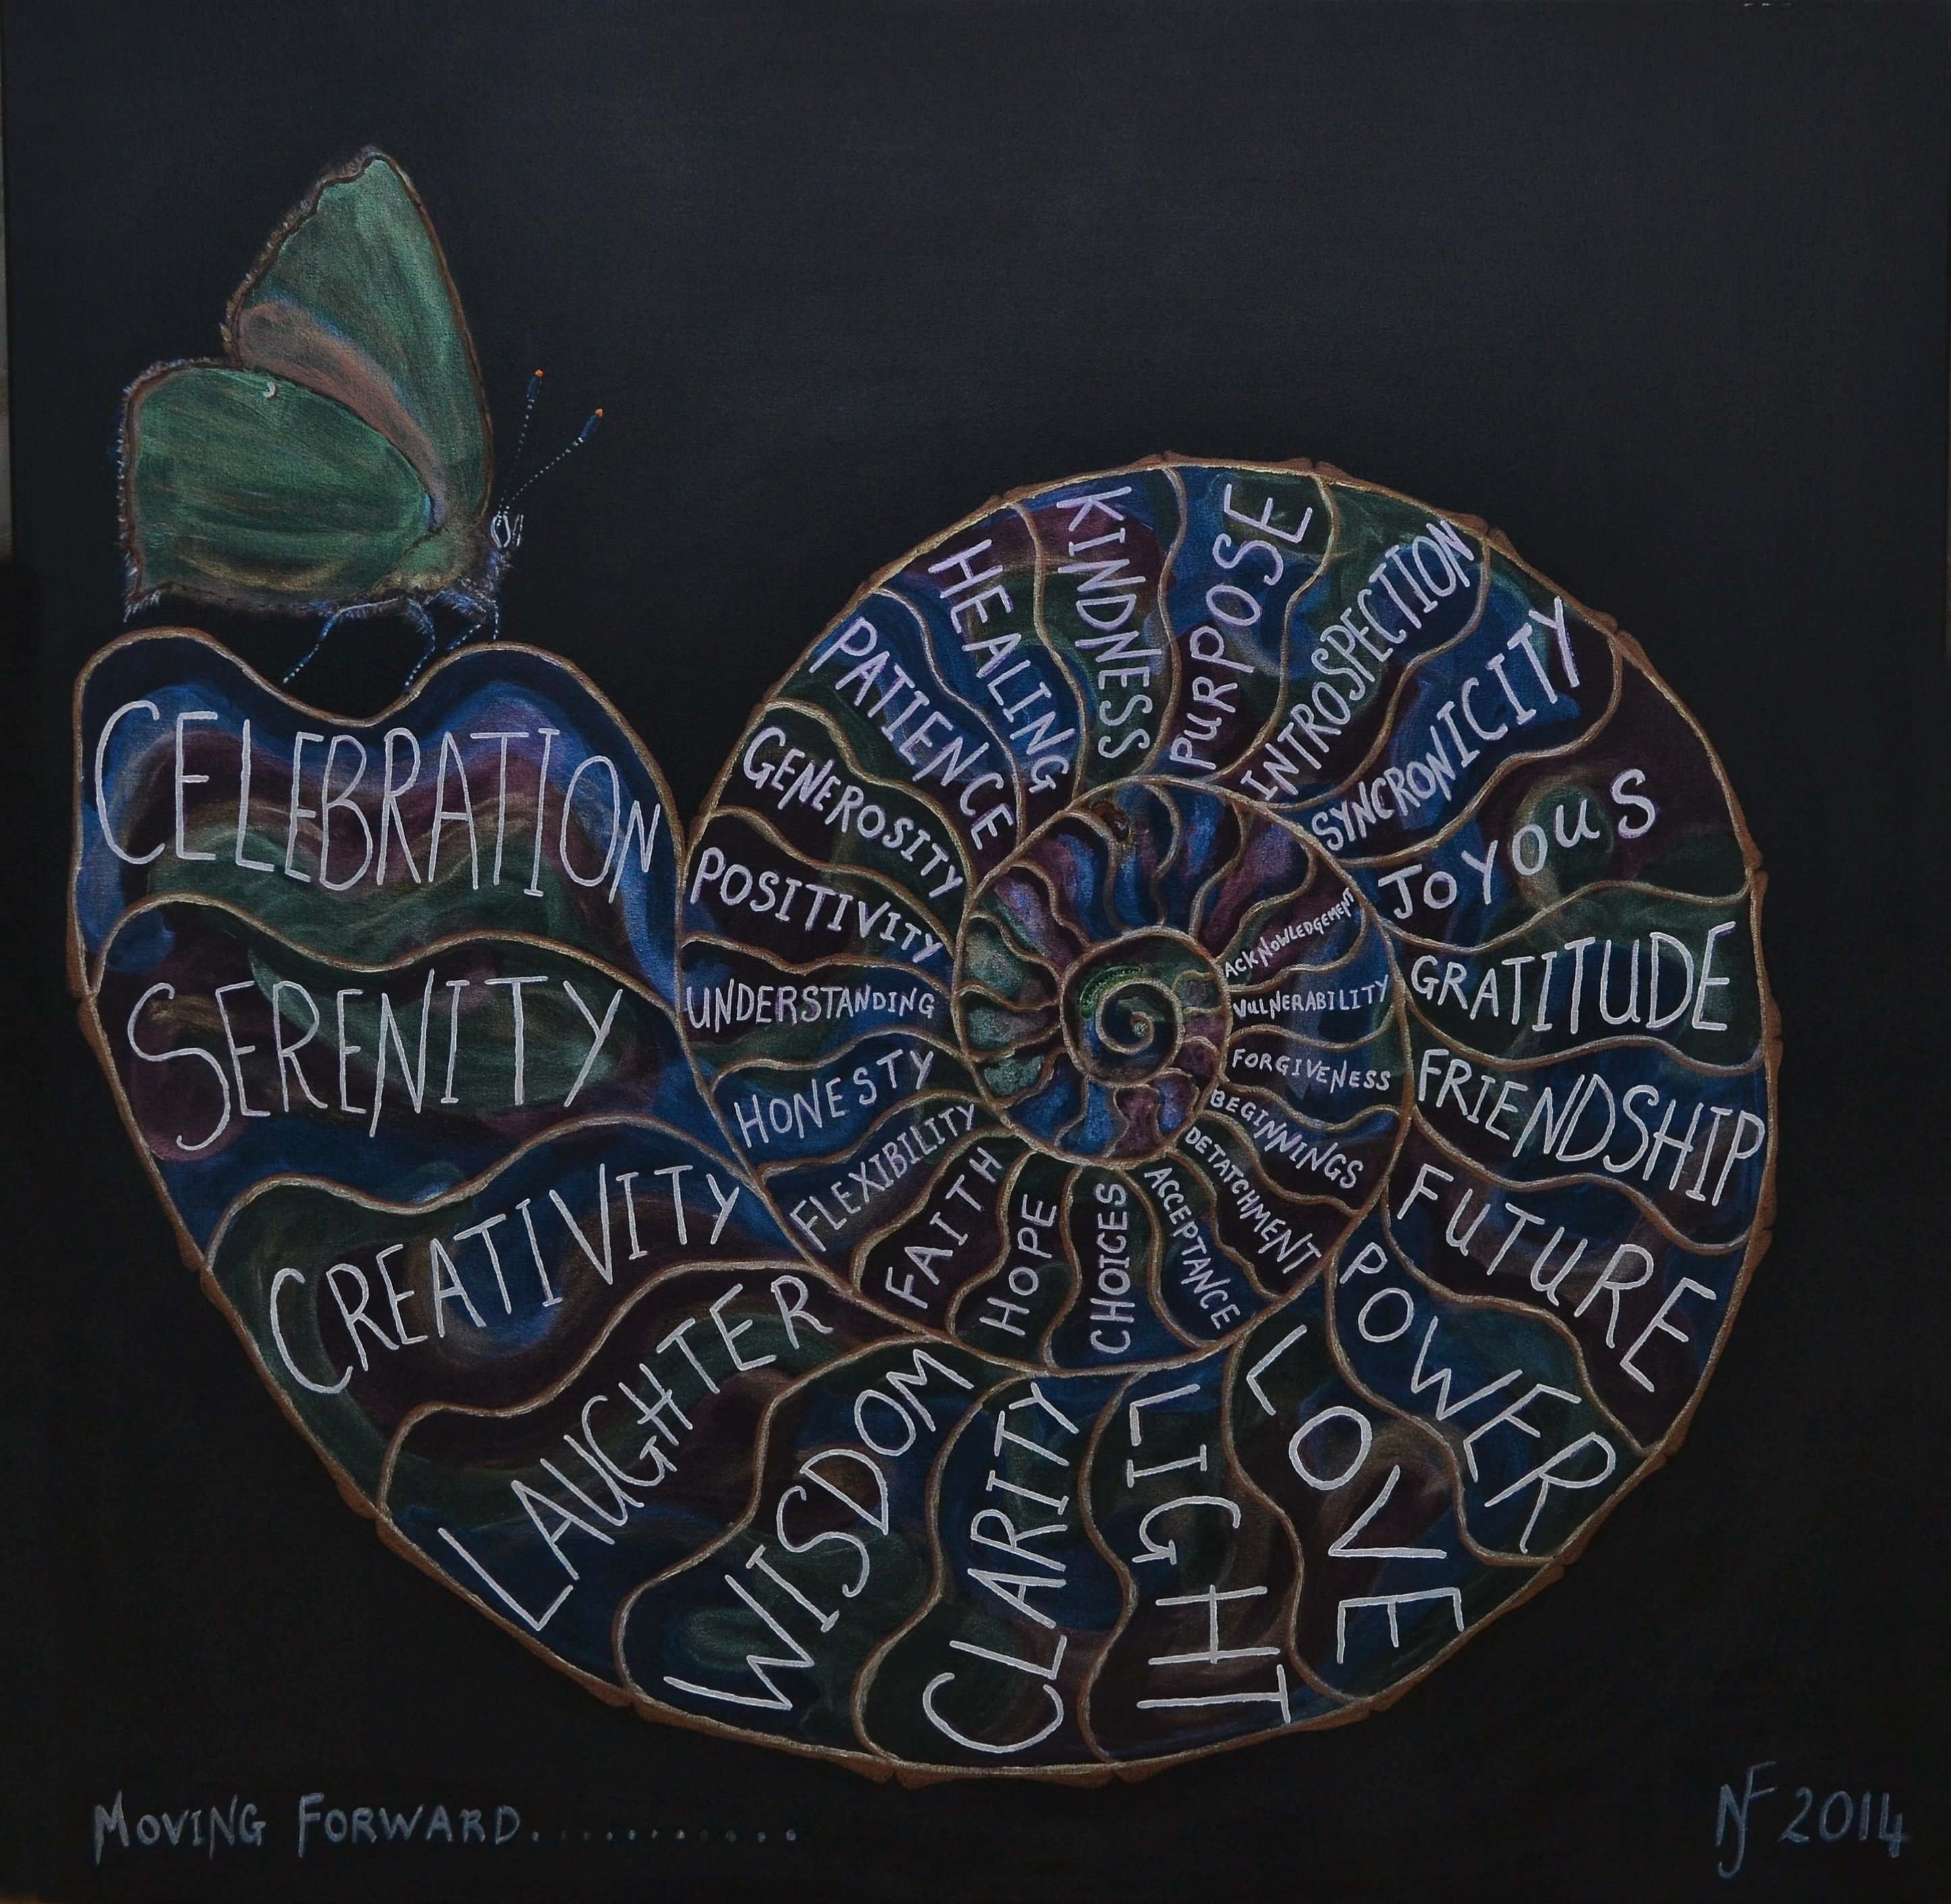 CELEBRATION
SERENITY
CREATIVITY
LAUGHTER
WISDOM
CLARITY
LIGHT
LOVE
POWER
FUTURE
FRIENDSHIP
GRATITUDE
JOYOUS
SYNCRONICITY
INTROSPECTION
PURPOSE
KINDNESS
HEALING
PATIENCE
GENEROSITY
POSITIVITY
UNDERSTANDING
HONESTY
FLEXIBILITY
FAITH
HOPE
CHOICES
ACCEPTANCE
DETATCHMENT
BEGINNINGS
FORGIVENESS
VULNERABILITY
ACKNOWLEDGEMENT
MOVING FORWARD............
NF 2014